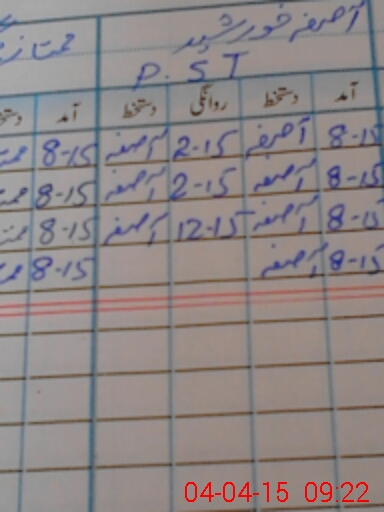 آصفہ خورشید ممتاز
P.ST
آمد دستخط روانگی دستخط آمد
8-15 آصفہ 2-15 آصفہ 8-15
8-15 آصفہ 2-15 آصفہ 8-15
8-15 آصفہ 12-15 آصفہ 8-15
8-15 آصفہ 8-15
04-04-15 09:22